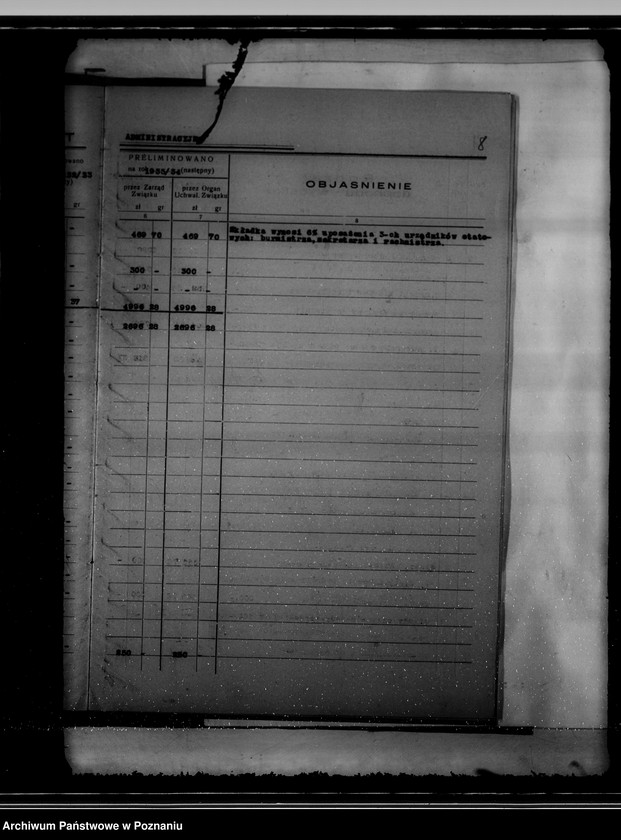 ADMINISTRACYJN
8
PRELIMINOWANO
na rok 1933/34 (następny)
przez Zarząd Związku
przez Organ Uchwał. Związku
OBJAŚNIENIE
zł gr zł gr
6 7 8
469 70 469 70 Składka wynosi 6% uposażenia 3-ch urzędników etato-
wych: burmistrza, sekretarza i rachmistrza.
300 - 300 -
37
4996 28 4996 28
2696 28 2696 28
250 -
Archiwum Państwowe w Poznaniu